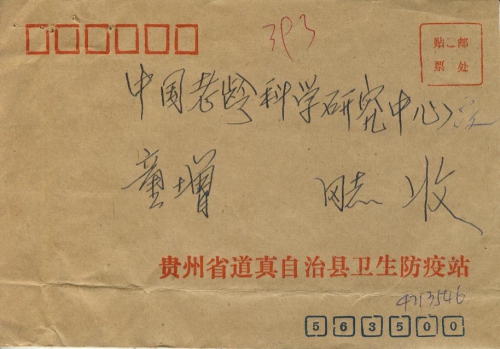 393
贴邮
票处
中国老龄科学研究中心
童增 同志 收
贵州省道真自治县卫生防疫站
4213546
563500